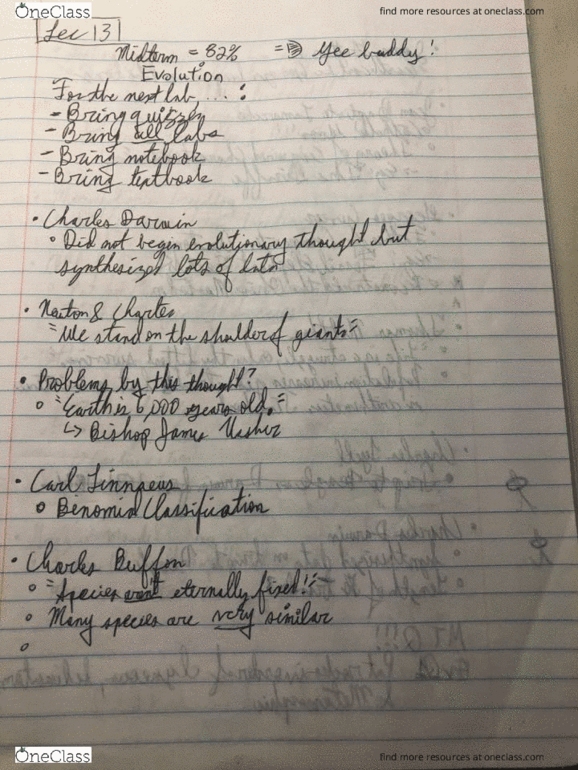 OneClass
find more resources at oneclass.com
Lec 13
Midterm = 82% => Yee buddy!
Evolution
For the next lab....:
- Bring quizzes
- Bring all labs
- Bring notebook
- Bring textbook
• Charles Darwin
• Did not begin evolutionary thought but
synthesized lots of data
• Newton & Chartes
"We stand on the shoulder of giants"
• Problems by this thought?
• "Earth is 6,000 years old."
↳ Bishop James Ussher
• Carl Linnaeus
• Binomial Classification
• Charles Buffon
• "Species aren't eternally fixed!"
• Many species are very similar
OneClass
find more resources at oneclass.com